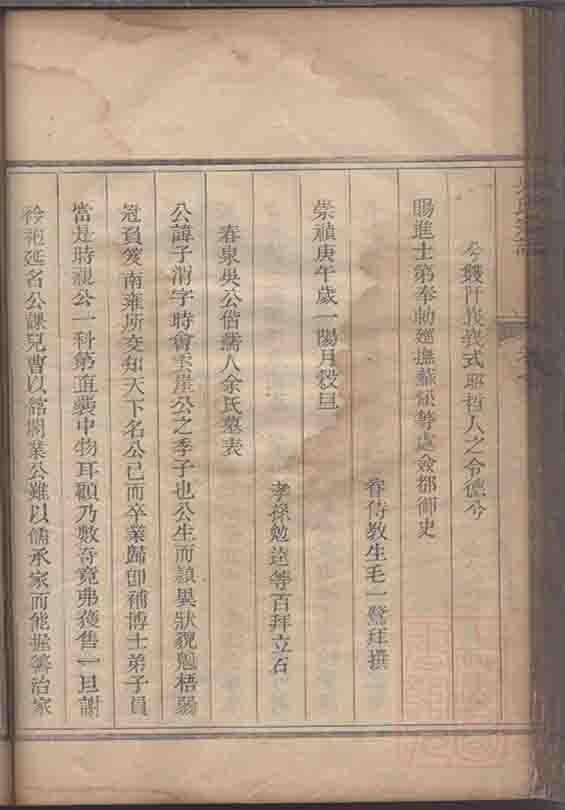 兮幾
式
哲人之令德兮
賜進士第奉勅廵撫蘇松等處僉都御史
眷侍教生毛一鷺拜撰
崇禎庚午歲一陽月穀旦
孝孫勉逵等百拜立石
春泉吳公偕孺人余氏墓表
公諱子渭字時會雲崖公之季子也公生而頴異狀貌魁梧弱
冠負笈南雍所交知天下名公已而卒業歸卽補博士弟子員
當是時視公一科第直囊中物耳顧乃數奇竟弗獲售一旦謝
衿袍延名公課兒曹以紹閥業公雖以儒承家而能握筭治家